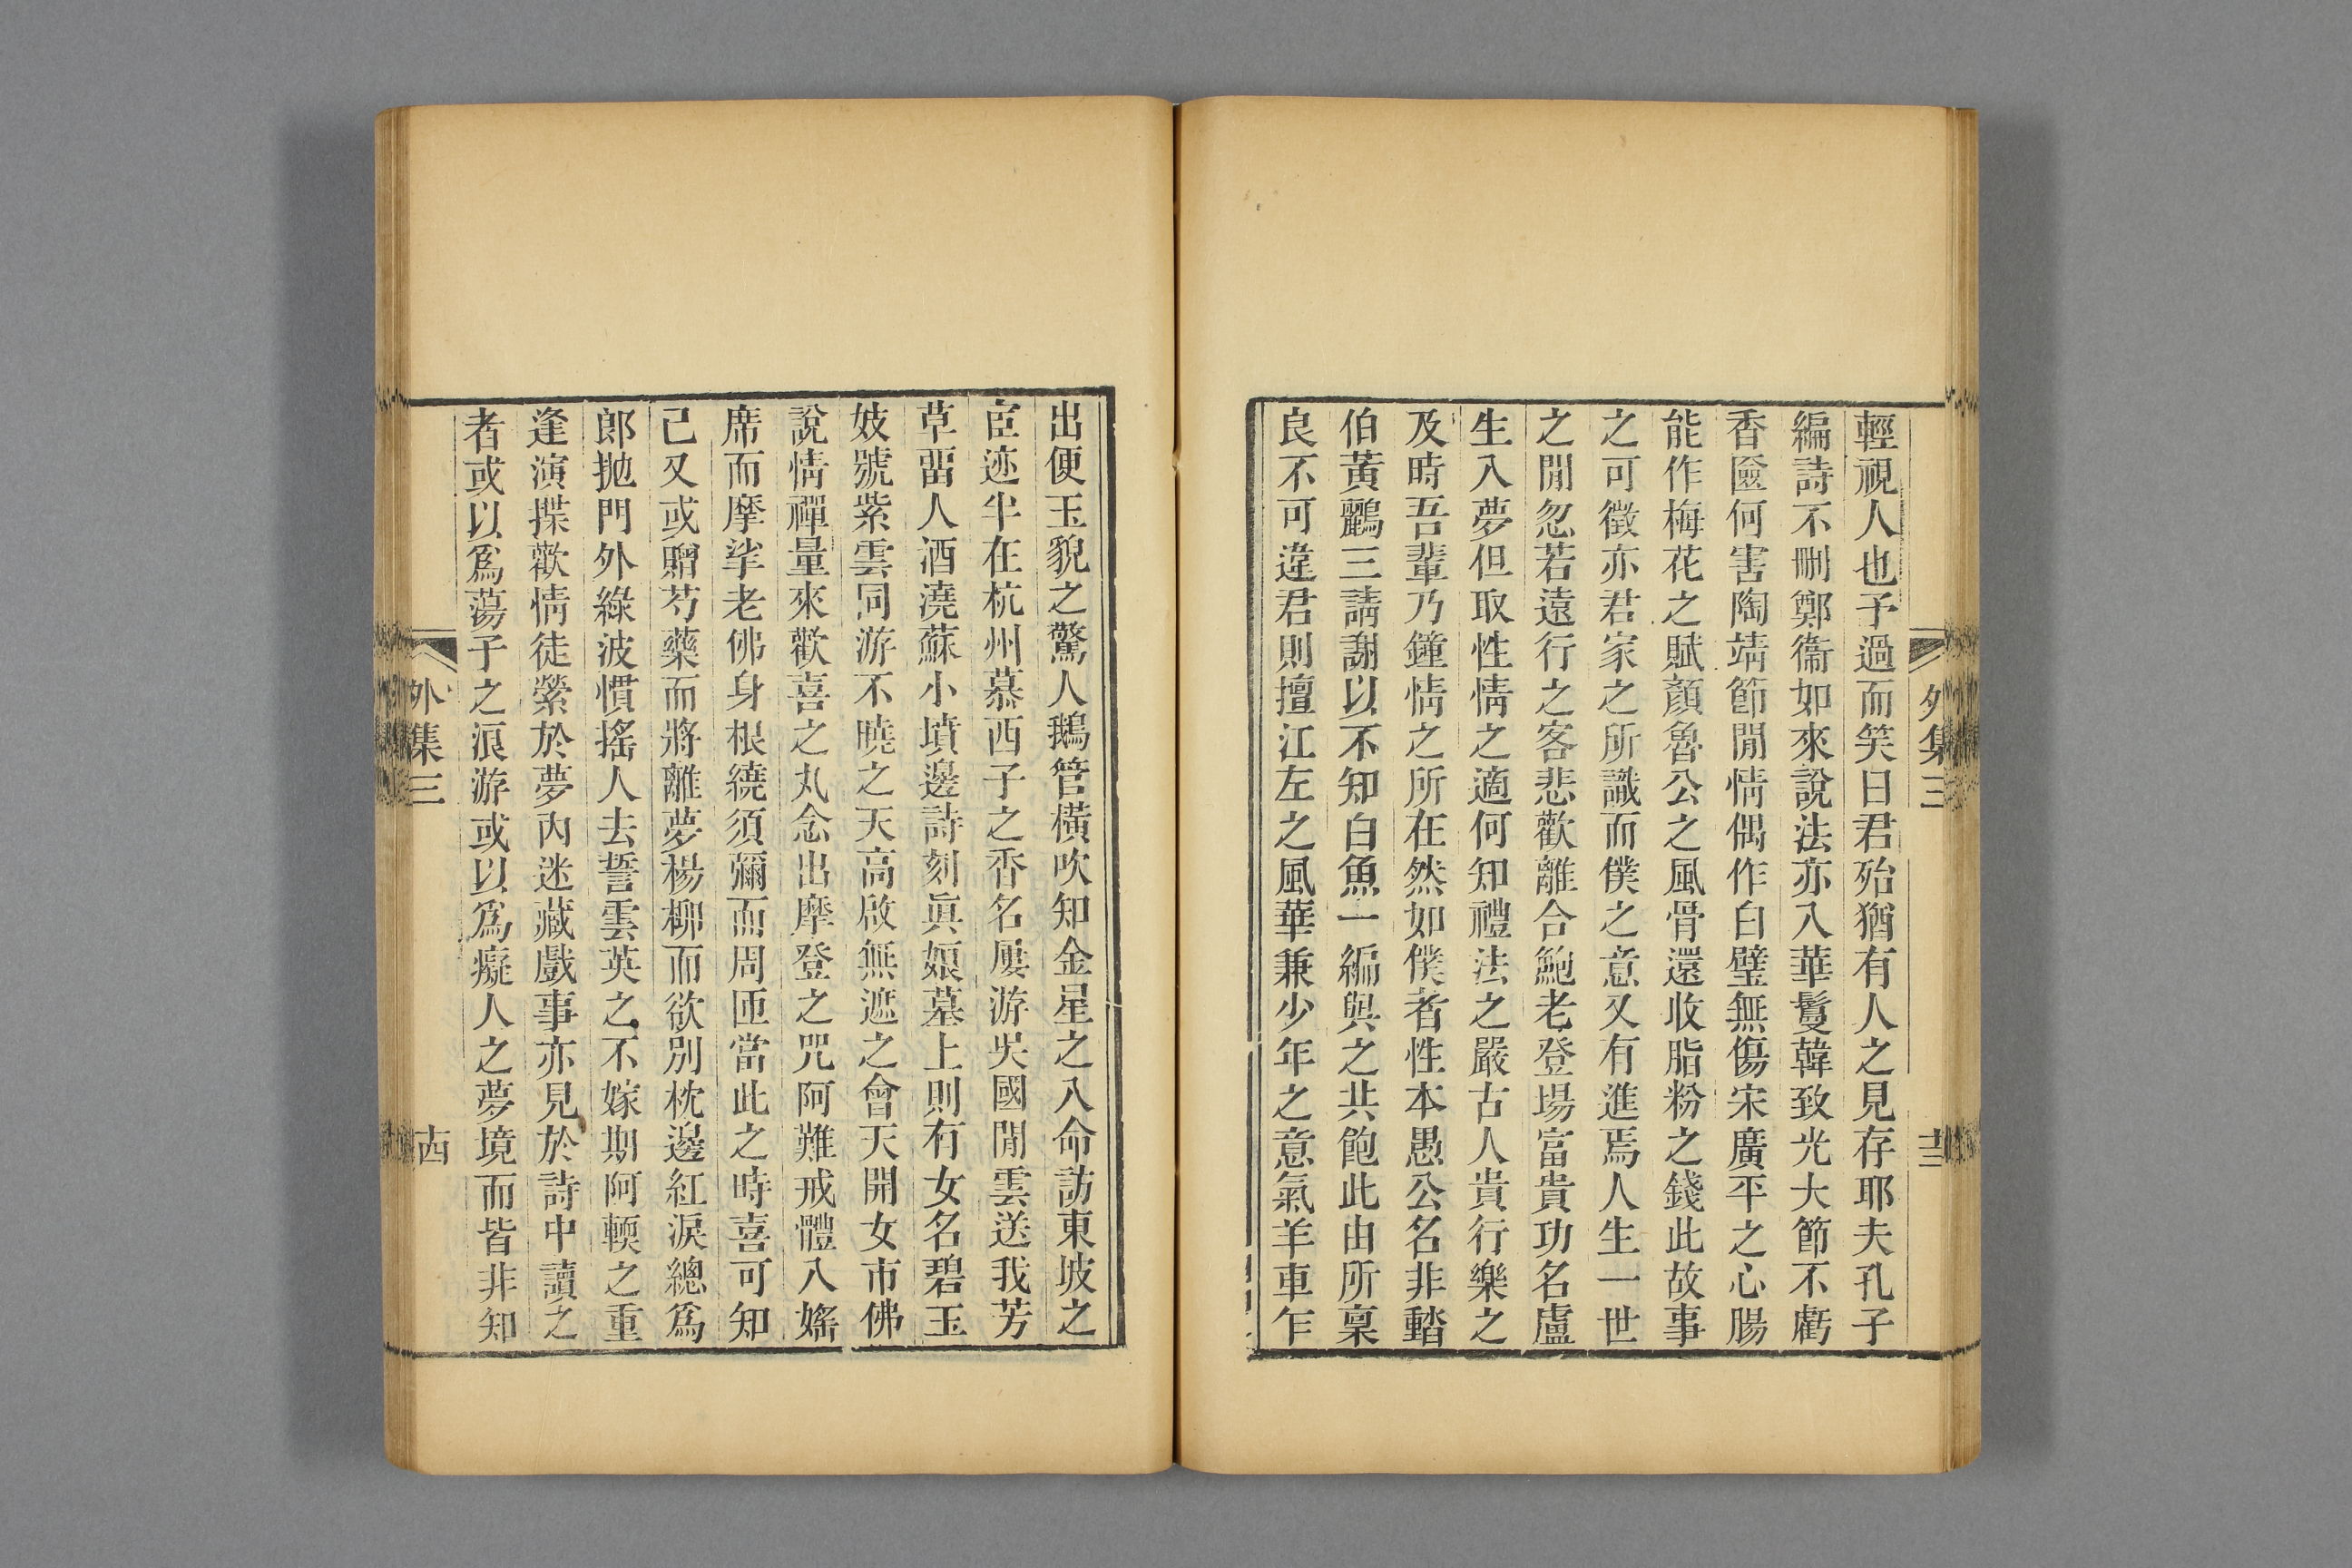 外集三
十三
輕視人也予過而笑曰君殆猶有人之見存耶夫孔子
編詩不刪鄭衞如來說法亦入華鬘韓致光大節不虧
香奩何害陶靖節閒情偶作白璧無傷宋廣平之心腸
能作梅花之賦顏魯公之風骨還收脂粉之錢此故事
之可徵亦君家之所識而僕之意又有進焉人生一世
之閒忽若遠行之客悲歡離合鮑老登場富貴功名盧
生入夢但取性情之適何知禮法之嚴古人貴行樂之
及時吾輩乃鐘情之所在然如僕者性本愚公名非酷
伯黃鸝三請謝以不知白魚一編與之共飽此由所稟
良不可違君則擅江左之風華兼少年之意氣羊車乍
出便玉貌之驚人鵝管橫吹知金星之入命訪東坡之
宦迹半在杭州慕西子之香名屢游吳國閒雲送我芳
草留人酒澆蘇小墳邊詩刻眞娘墓上則有女名碧玉
妓號紫雲同游不曉之天高啟無遮之會天開女市佛
說情禪量來歡喜之丸念出摩登之咒阿難戒體入婬
席而摩挲老佛身根繞須彌而周匝當此之時喜可知
已又或贈芍藥而將離夢楊柳而欲別枕邊紅淚總爲
郎拋門外綠波慣搖人去誓雲英之不嫁期阿輭之重
逢演揲歡情徒縈於夢內迷藏戲事亦見於詩中讀之
者或以爲蕩子之浪游或以爲癡人之夢境而皆非知
外集三
古